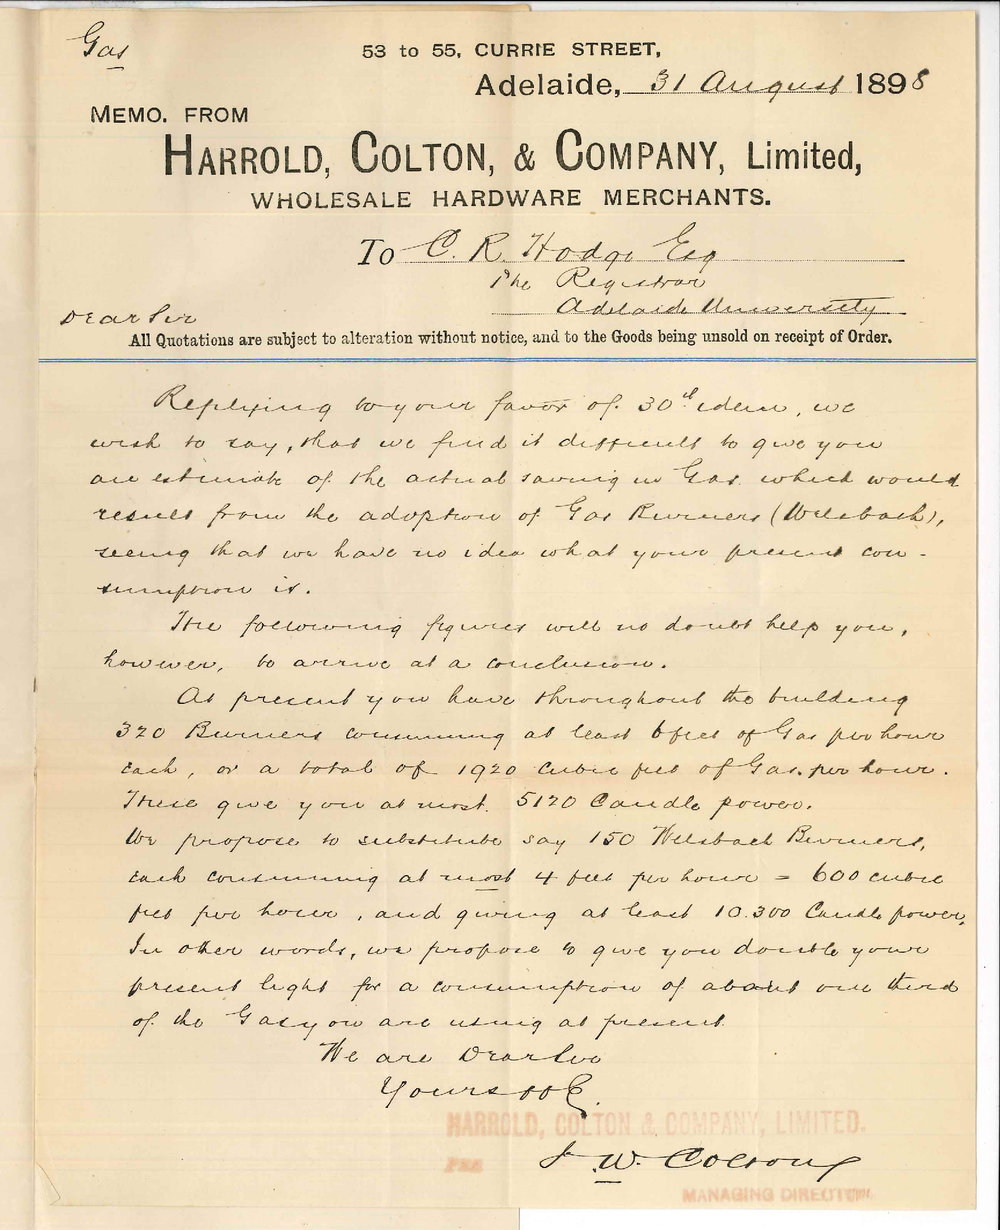 Gas
53 to 55, CURRIE STREET,
Adelaide, 31 August 1898
MEMO. FROM
HARROLD, COLTON, & COMPANY, Limited,
WHOLESALE HARDWARE MERCHANTS.
To C. R. Hodge Esq
The Registrar
Adelaide University
Dear Sir
All Quotations are subject to alteration without notice, and to the Goods being unsold on receipt of Order.
Replying to your favor of 30th idem, we
wish to say, that we find it difficult to give you
an estimate of the actual saving in Gas which would
result from the adoption of Gas Burners (Welsbach),
seeing that we have no idea what your present con-
sumption is.
The following figures will no doubt help you,
however, to arrive at a conclusion.
At present you have throughout the building
320 Burners consuming at least 6 feet of Gas per hour
each, or a total of 1920 cubic feet of Gas per hour.
These give you at most 5120 Candle power.
We propose to substitute say 150 Welsbach Burners,
each consuming at most 4 feet per hour = 600 cubic
feet per hour, and giving at least 10.300 Candle power,
In other words, we propose to give you double your
present light for a consumption of about one third
of the Gas you are using at present.
We are Dear Sir
Yours
HARROLD, COLTON & COMPANY, LIMITED.
PER J. W. Colton
MANAGING DIRECTOR